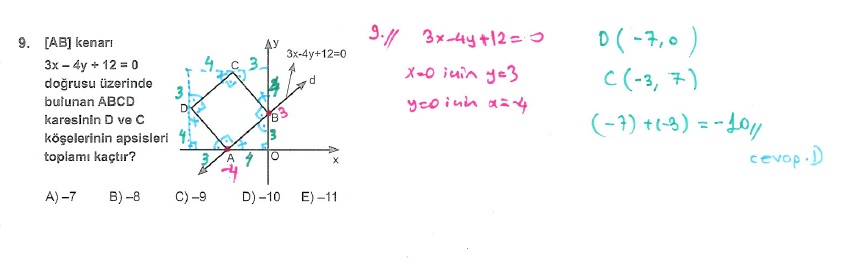 9. [AB] kenarı
3x – 4y + 12 = 0
doğrusu üzerinde
bulunan ABCD
karesinin D ve C
köşelerinin apsisleri
toplamı kaçtır?
y
3x-4y+12=0
d
4 C 3
3
4
D
B 3
4
3
3 A 4 O x
-4
A) –7 B) –8 C) –9 D) –10 E) –11
9.// 3x-4y+12=0
x=0 için y=3
y=0 için x=-4
D(-7,0)
C(-3, 7)
(-7)+(-3) = -10//
cevap.D